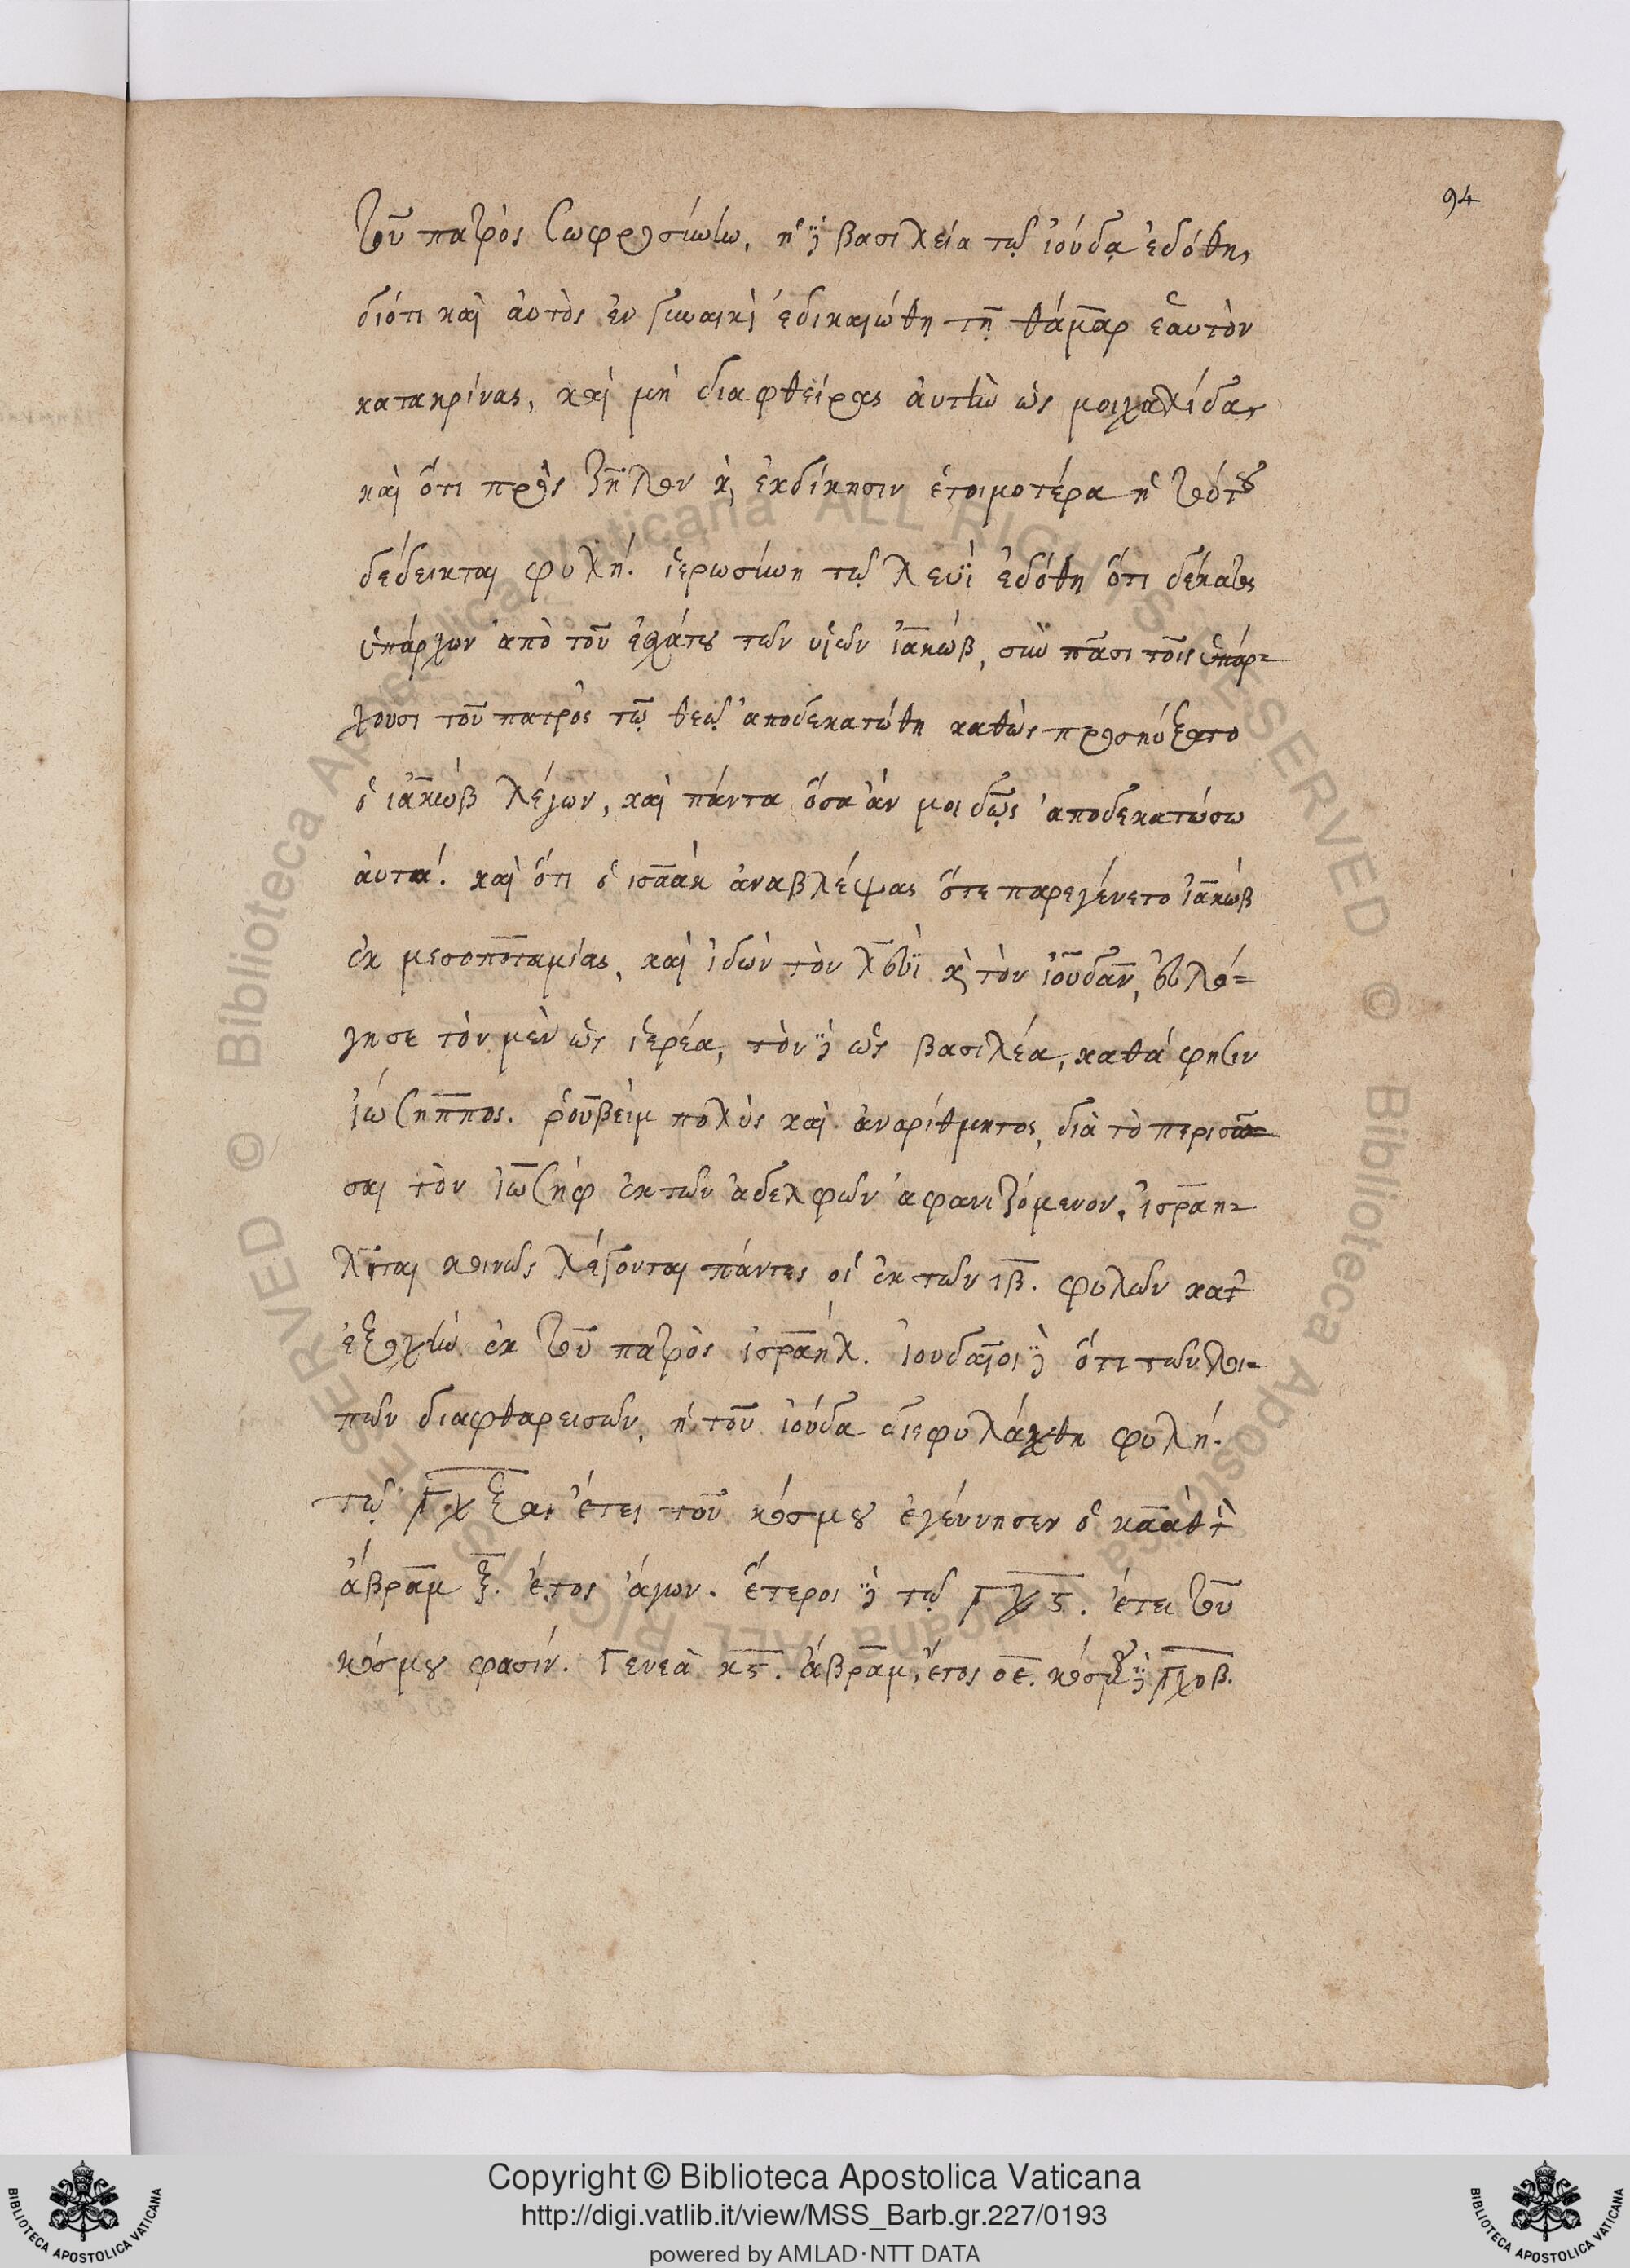 94
τοῦ πατρὸς σωφροσύνην, ἡ δὲ βασιλεία τῷ ἰούδᾳ ἐδόθη,
διότι καὶ αὐτὸς ἐν γυναικὶ ἐδικαιώθη τῇ θάμαρ ἑαυτὸν
κατακρίνας, καὶ μὴ διαφθείρας αὐτὴν ὡς μοιχαλίδα,
καὶ ὅτι πρὸς ζῆλον κ̀ ἐκδίκησιν ἑτοιμοτέρα ἡ τούτου
δέδεικται φυλή. ἱερωσύνη τῷ λευῒ ἐδόθη ὅτι δέκατος
ὑπάρχων ἀπὸ τοῦ ἐσχάτου τῶν υἱῶν ἰακὼβ, σὺν πᾶσι τοῖς ὑπάρ=
χουσι τοῦ πατρὸς τῷ θεῷ ἀποδεκατώθη καθὼς προσηύξατο
ὁ ἰακὼβ λέγων, καὶ πάντα ὅσα ἄν μοι δῷς ἀποδεκατώσω
αὐτά. καὶ ὅτι ὁ ισαὰκ ἀναβλέψας ὅτε παρεγένετο ἰακὼβ
ἐκ μεσοποταμίας, καὶ ἰδὼν τὸν λευῒ κ̀ τὸν ἰούδαν, εὐλό=
γησε τὸν μὲν ὡς ἱερέα, τὸν δὲ ὡς βασιλέα, καθά φησιν
ἰώσηππος. ῥουβεὶμ πολὺς καὶ ἀναρίθμητος, διὰ τὸ περισῶ=
σαι τὸν ἰωσὴφ ἐκ τῶν ἀδελφῶν ἀφανιζόμενον. ἰσραη=
λῖται κοινῶς λέγονται πάντες οἱ ἐκ τῶν ιβ. φυλῶν κατ
ἐξοχὴν ἐκ τοῦ πατρὸς ἰσραήλ. ἰουδαῖοι δὲ ὅτι τῶν λοι=
πῶν διαφθαρεισῶν, ἡ τοῦ ἰούδα διεφυλάχθη φυλή.
τῷ ͵γχξαι ἔτει τοῦ κόσμου ἐγέννησεν ὁ καὰθ τὸν
ἀβραμ ξ. ἔτος ἄγων. ἕτεροι δὲ τῷ ͵γχϛ. ἔτει τοῦ
κόσμου φασίν. Γενεὰ κϛ. ἀβραμ, ἔτος οε. κόσμου δὲ ͵γχοβ.
Copyright © Biblioteca Apostolica Vaticana
http://digi.vatlib.it/view/MSS_Barb.gr.227/0193
powered by AMLAD·NTT DATA
BIBLIOTECA APOSTOLICA VATICANA
BIBLIOTECA APOSTOLICA VATICANA
© Biblioteca Apostolica Vaticana ALL RIGHTS RESERVED © Biblioteca Apostolica Vaticana ALL RIGHTS RESERVED